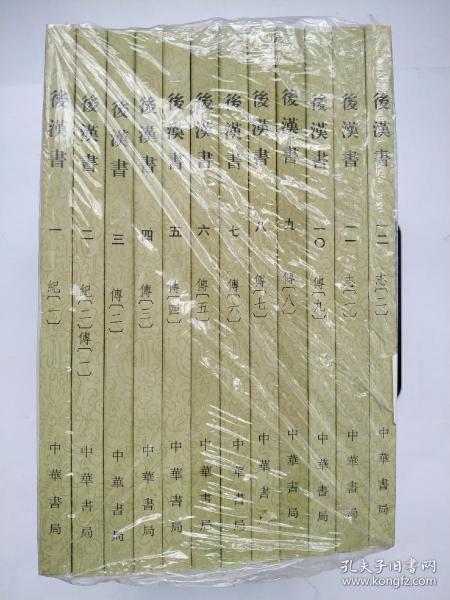 後漢書 一 紀〔一〕 中華書局
後漢書 二 紀〔二〕傳〔一〕 中華書局
後漢書 三 傳〔二〕 中華書局
後漢書 四 傳〔三〕 中華書局
後漢書 五 傳〔四〕 中華書局
後漢書 六 傳〔五〕 中華書局
後漢書 七 傳〔六〕 中華書局
後漢書 八 傳〔七〕 中華書
後漢書 九 傳〔八〕 中華書局
後漢書 一〇 傳〔九〕 中華書局
後漢書 一一 志〔一〕 中華書局
後漢書 一二 志〔二〕 中華書局
孔夫子旧书网
www.kongfz.com